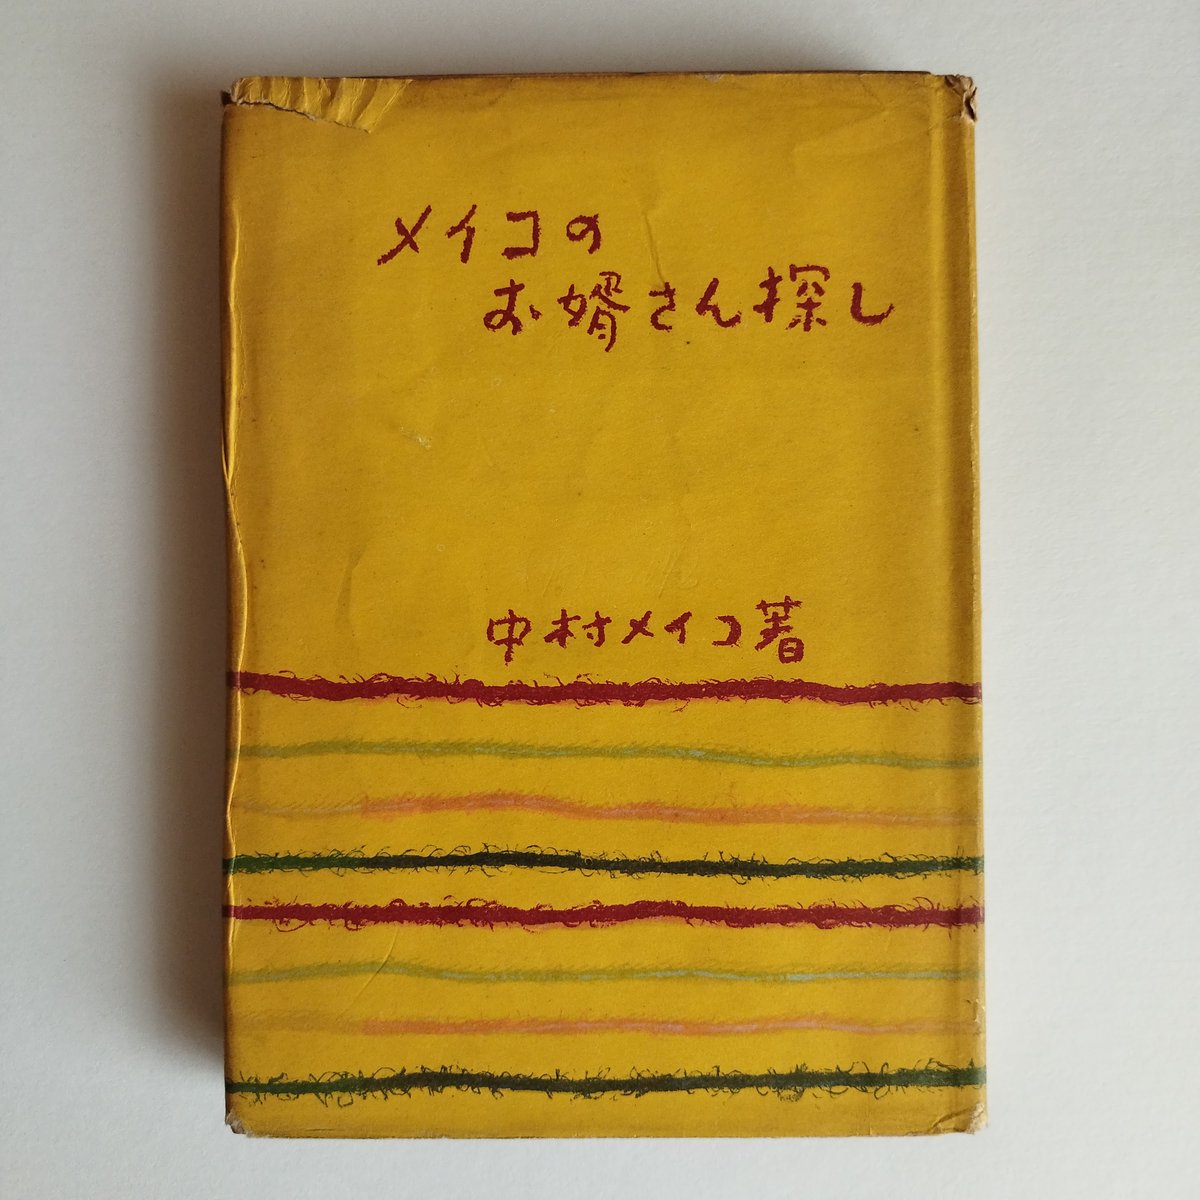 メイコの
お婿さん探し
中村メイコ著